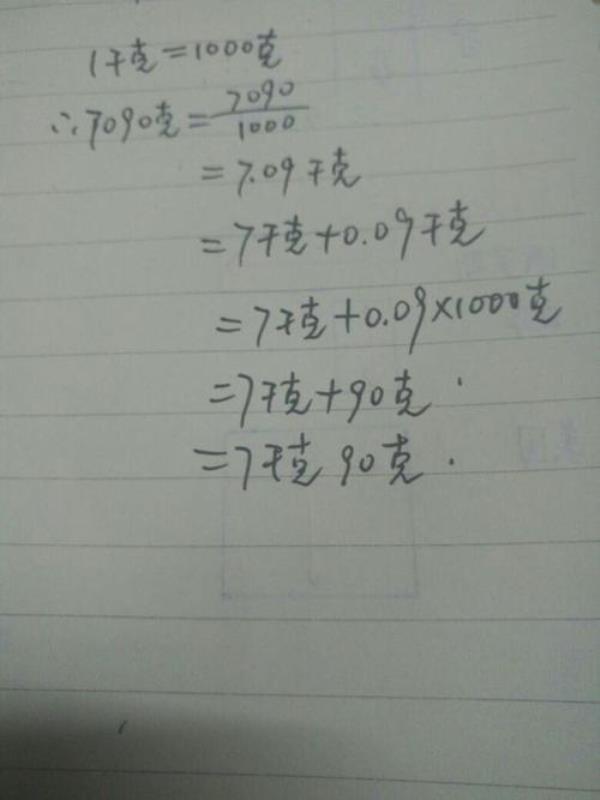 1千克=1000克
∴7090克=7090/1000
=7.09千克
=7千克+0.09千克
=7千克+0.09×1000克
=7千克+90克.
=7千克90克.